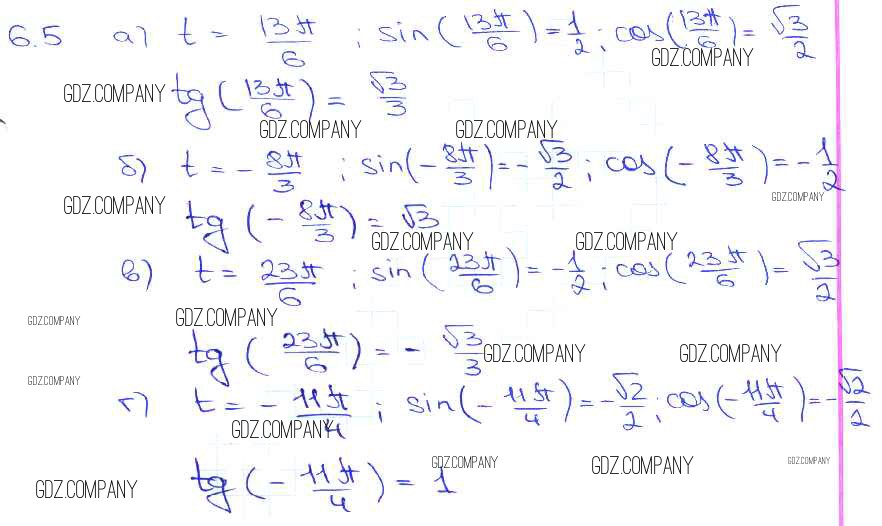 6.5 а) t = 13π/6 ; sin(13π/6) = 1/2 ; cos(13π/6) = √3/2
GDZ.COMPANY
GDZ.COMPANY tg(13π/6) = √3/3
GDZ.COMPANY GDZ.COMPANY
б) t = - 8π/3 ; sin(- 8π/3) = - √3/2 ; cos(- 8π/3) = - 1/2
GDZ.COMPANY
GDZ.COMPANY tg(- 8π/3) = √3
GDZ.COMPANY GDZ.COMPANY
в) t = 23π/6 ; sin(23π/6) = - 1/2 ; cos(23π/6) = √3/2
GDZ.COMPANY GDZ.COMPANY
tg(23π/6) = - √3/3 GDZ.COMPANY GDZ.COMPANY
GDZ.COMPANY
г) t = - 11π/4 ; sin(- 11π/4) = - √2/2 ; cos(- 11π/4) = - √2/2
GDZ.COMPANY
tg(- 11π/4) = 1 GDZ.COMPANY GDZ.COMPANY GDZ.COMPANY
GDZ.COMPANY